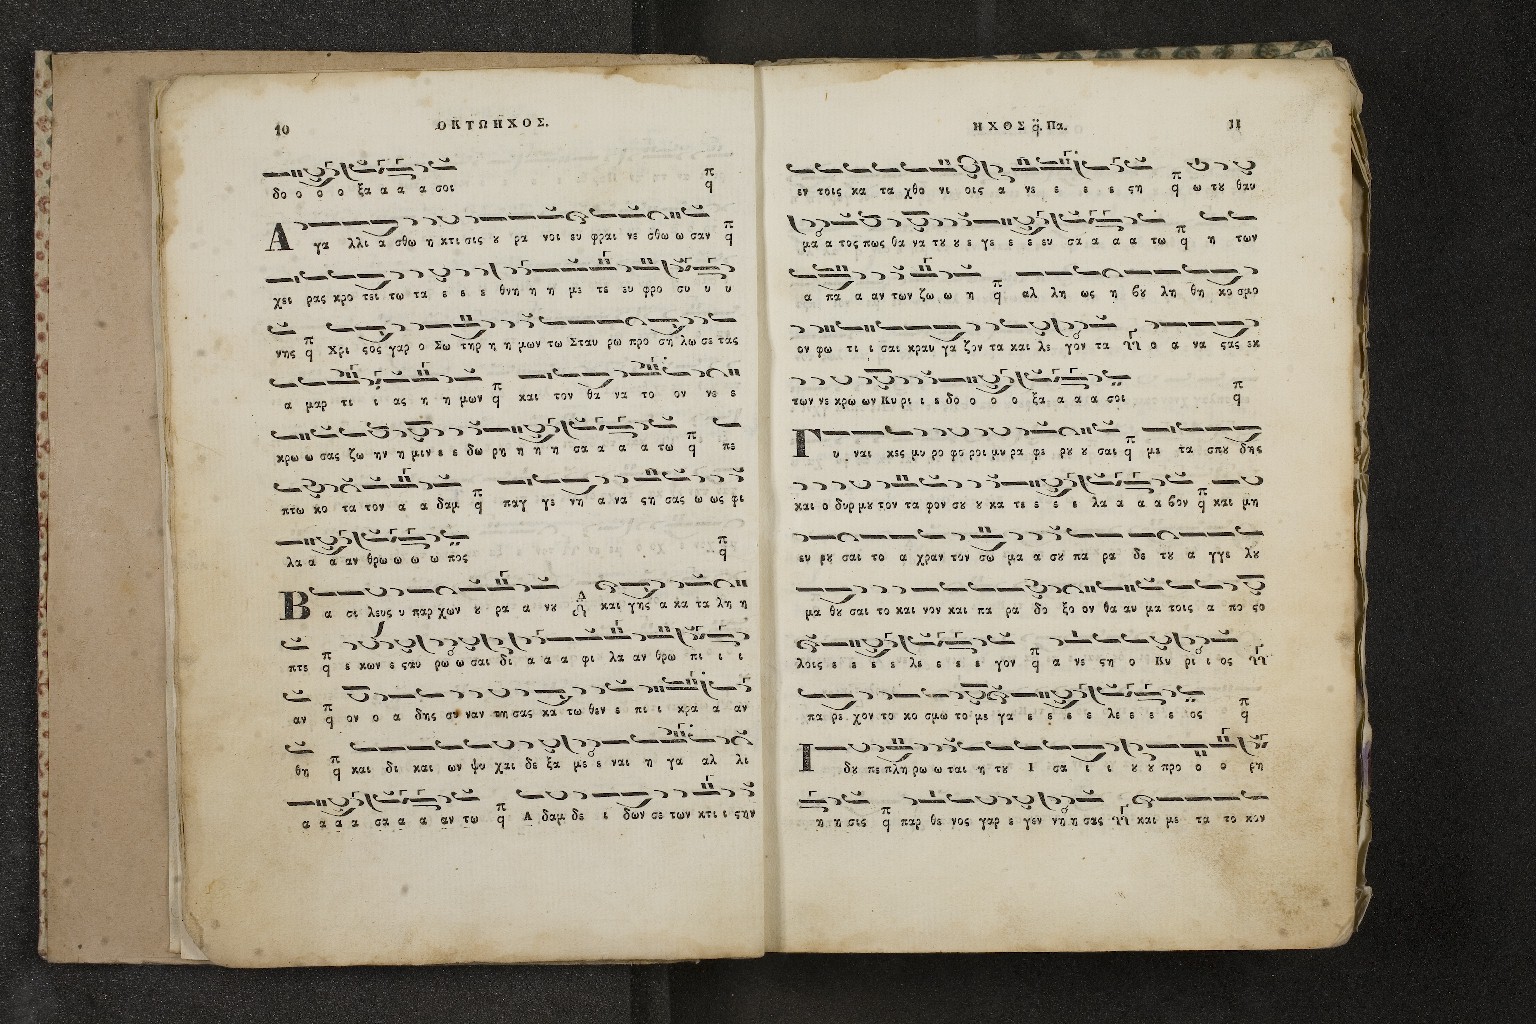 10
ΟΚΤΩΗΧΟΣ.
δο ο ο ο ξα α α α σοι
Α γα λλι α σθω η κτι σις ȣ ρα νοι ευ φραι νε σθω ω σαν
χει ρας κρο τει τω τα ε ε ε θνη η η με τε ευ φρο συ υ υ
νης Χρι ϛος γαρ ο Σω τηρ η η μων τω Σταυ ρω προ ση λω σε τας
α μαρ τι ι ας η η μων και τον θα να το ον νε ε
κρω ω σας ζω ην η μιν ε ε δω ρη η η η σα α α α τω πε
πτω κο τα τον α α δαμ παγ γε νη α να ϛη σας ω ως φι
λα α α αν θρω ω ω ω πος
Β α σι λευς υ παρ χων ȣ ρα α νȣ και γης α κα τα λη η
πτε ε κων ε ϛαυ ρω ω σαι δι α α α φι λα αν θρω πι ι ι
αν ον ο α δης συ ναν τη σας κα τω θεν ε πι ι κρα α αν
θη και δι και ων ψυ χαι δε ξα με ε ναι η γα αλ λι
α α α α σα α α αν τω Α δαμ δε ι δων σε των κτι ι ϛην
ΗΧΟΣ q̈. Πα.
11
εν τοις κα τα χθο νι οις α νε ε ε ε ϛη ω τȣ θαυ
μα α τος πως θα να τȣ ȣ ε γε ε ε ευ σα α α α τω η των
α πα α αν των ζω ω η αλ λη ως η βȣ λη θη κο σμο
ον φω τι ι σαι κραυ γα ζον τα και λε γον τα ο α να ϛας εκ
των νε κρω ων Κυ ρι ι ε δο ο ο ο ξα α α α σοι
Γ υ ναι κες μυ ρο φο ροι μυ ρα φε ρȣ ȣ σαι με τα σπȣ δης
και ο δυρ μȣ τον τα φον σȣ ȣ κα τε ε ε ε λα α α α βον και μη
ευ ρȣ σαι το α χραν τον σω μα α σȣ πα ρα δε τȣ α γγε λȣ
μα θȣ σαι το και νον και πα ρα δο ξο ον θα αυ μα τοις α πο ϛο
λοις ε ε ε ε λε ε ε ε γον α νε ϛη ο Κυ ρι ι ος
πα ρε χον το κο σμω το με γα ε ε ε ε λε ε ε ε ος
Ι δȣ πε πλη ρω ω ται η τȣ Ι σα ι ι ȣ ȣ προ ο ο ρη
η η σις παρ θε νος γαρ ε γεν νη η σας και με τα το κον